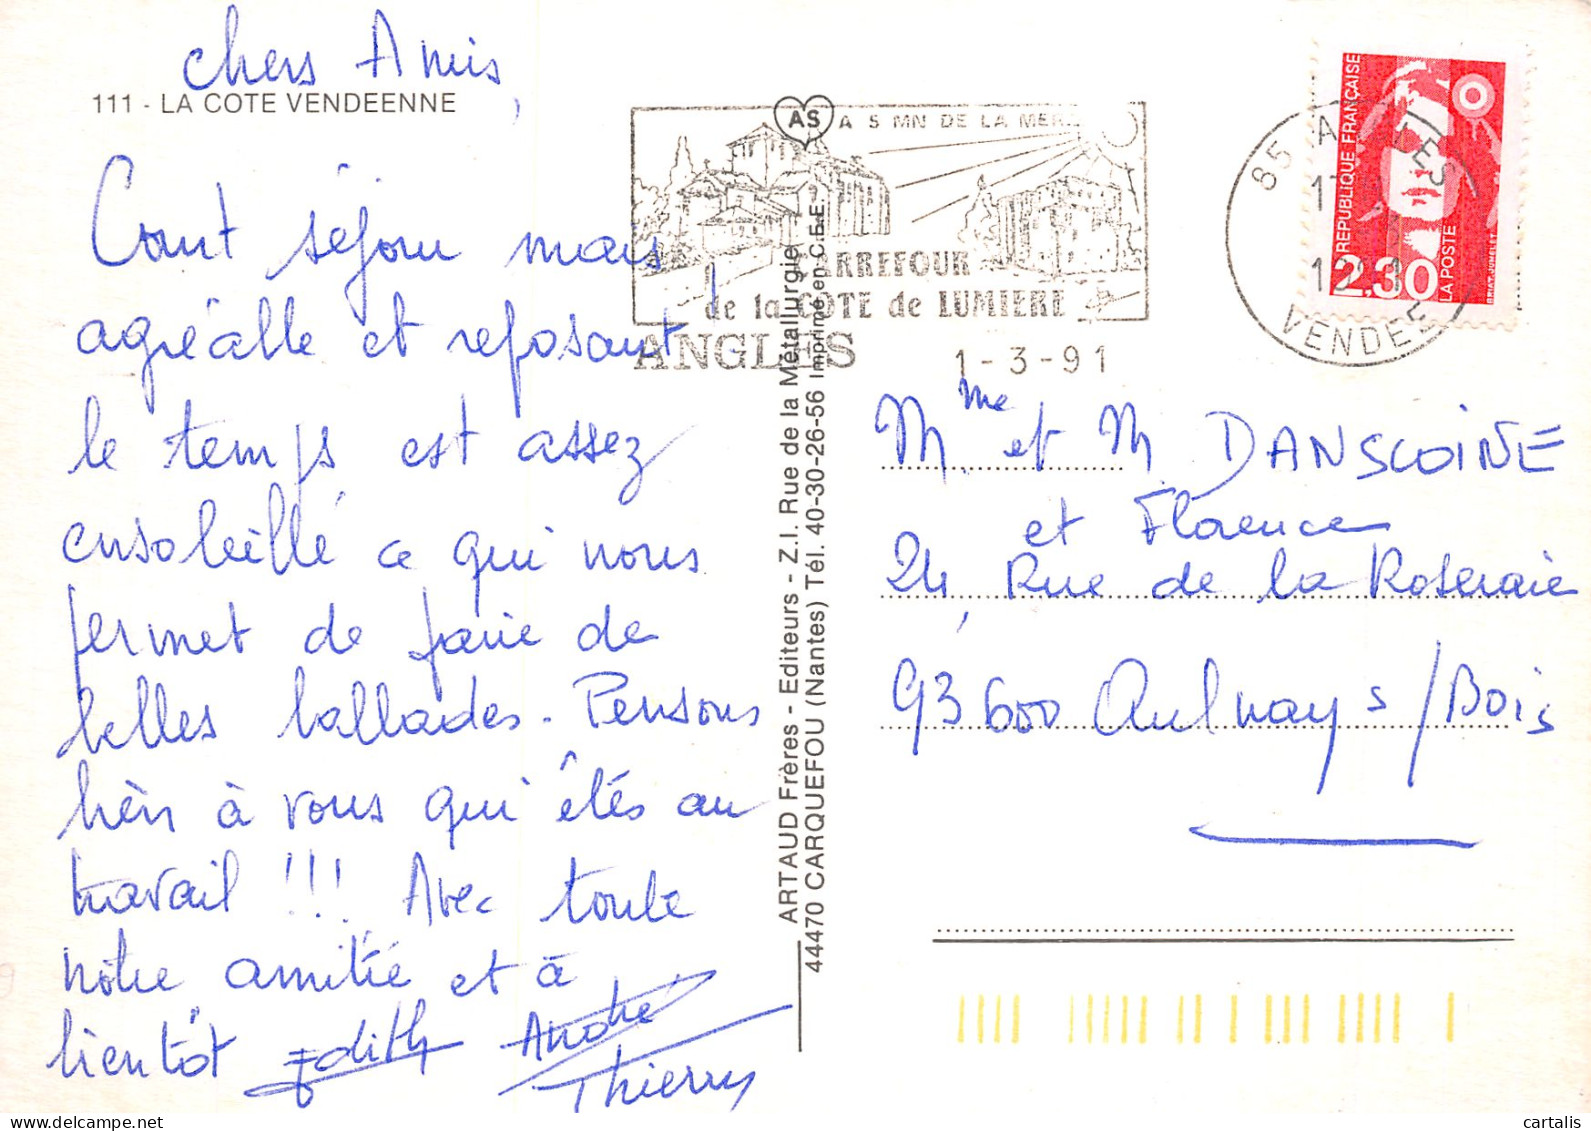 chers Amis,
111 - LA COTE VENDEENNE
Court séjour mais
agréable et reposant!
le temps est assez
ensoleillé ce qui nous
permet de faire de
belles ballades. Pensons
bien à vous qui êtes au
travail !!! Avec toute
notre amitié et à
bientôt Edith André
Thierry
ARTAUD Frères - Editeurs - Z.I. Rue de la Métallurgie
44470 CARQUEFOU (Nantes) Tél. 40-30-26-56 Imprimé en C.E.E.
AS A 5 MN DE LA MER
CARREFOUR
de la COTE de LUMIERE
ANGLES
1-3-91
85 ANGLES
VENDEE
REPUBLIQUE FRANÇAISE
2,30
LA POSTE
BRIAT-JUMELET
Mme et M DANSCOINE
et Florence
24, Rue de la Roseraie
93600 Aulnay s/Bois
cartalis
delcampe.net